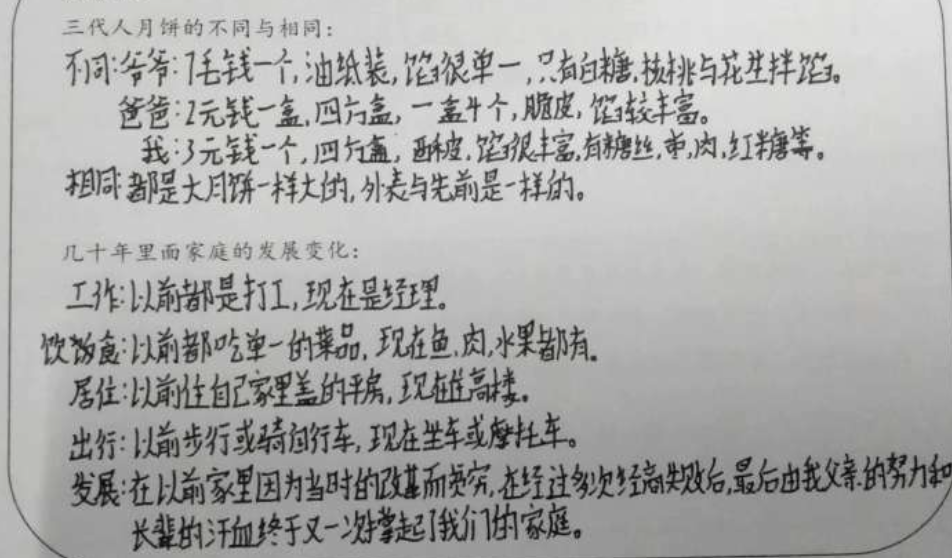 三代人月饼的不同与相同:
不同:爷爷:7毛钱一个,油纸装,馅很单一,只有白糖,核桃与花生拌馅。
爸爸:2元钱一盒,四方盒,一盒4个,脆皮,馅较丰富。
我:3元钱一个,四方盒,酥皮,馅很丰富,有糖丝,枣,肉,红糖等。
相同:都是大月饼一样大的,外表与先前是一样的。
几十年里面家庭的发展变化:
工作:以前都是打工,现在是经理。
饮食:以前都吃单一的菜品,现在鱼,肉,水果都有。
居住:以前住自己家里盖的平房,现在住高楼。
出行:以前步行或骑自行车,现在坐车或摩托车。
发展:在以前家里因为当时的改基而贫穷,在经过多次经商失败后,最后由我父亲的努力和
长辈的汗血终于又一次撑起了我们的家庭。